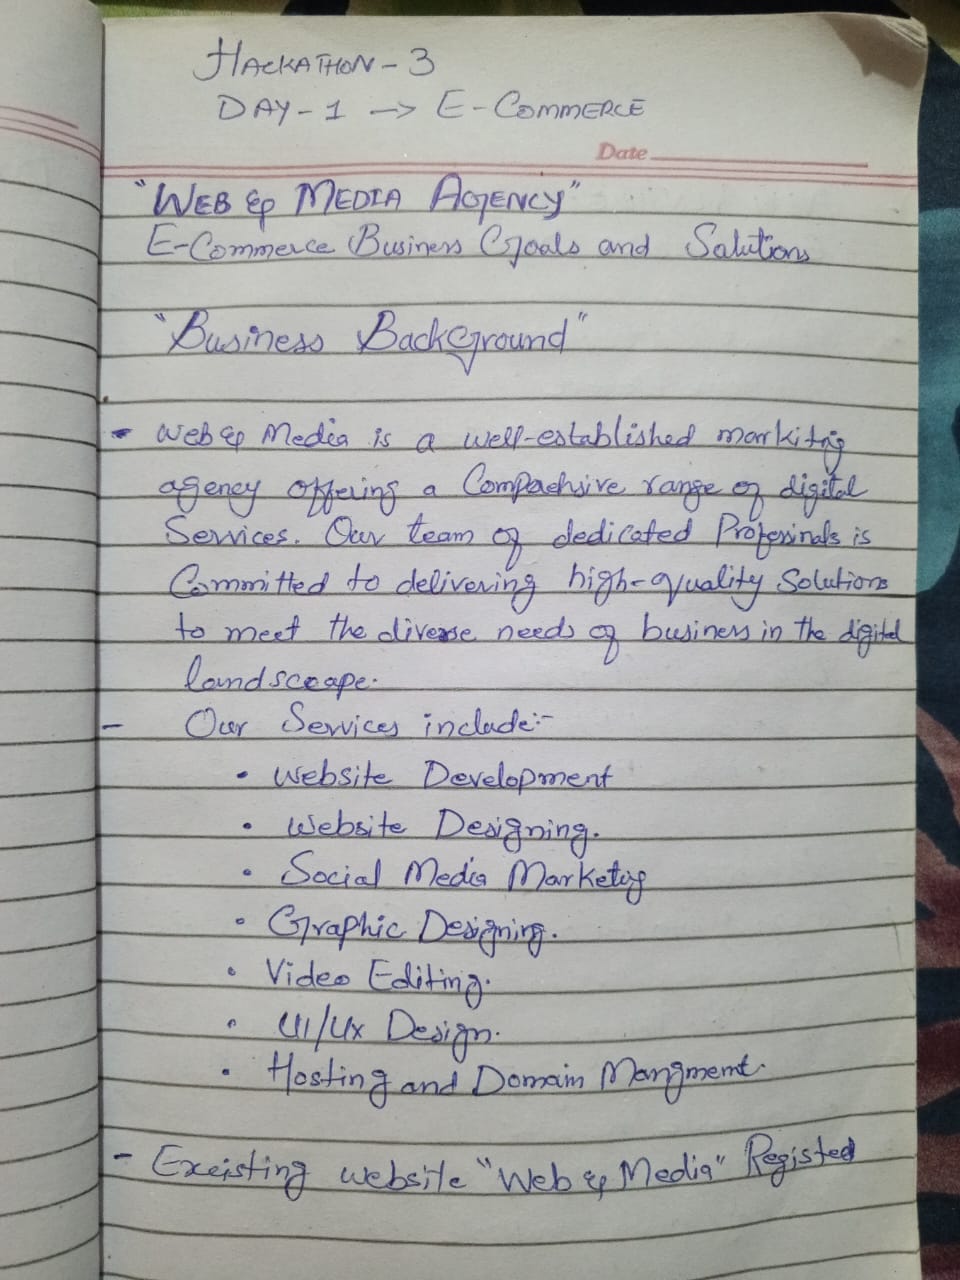 HACKATHON - 3
DAY - 1 → E - COMMERCE
Date
"WEB & MEDIA AGENCY"
E-Commerce Business Goals and Solutions
"Business Background"
- Web & Media is a well-established markitng
agency offering a Compaehsive range of digital
Services. Our team of dedicated Professinals is
Committed to delivering high-quality Solutions
to meet the diverse needs of business in the digital
landsceape.
- Our Services include:-
• Website Development
• Website Designing.
• Social Media Marketig
• Graphic Designing.
• Video Editing.
• UI/Ux Design.
• Hosting and Domain Mangment.
- Exeisting website "Web & Media" Registed